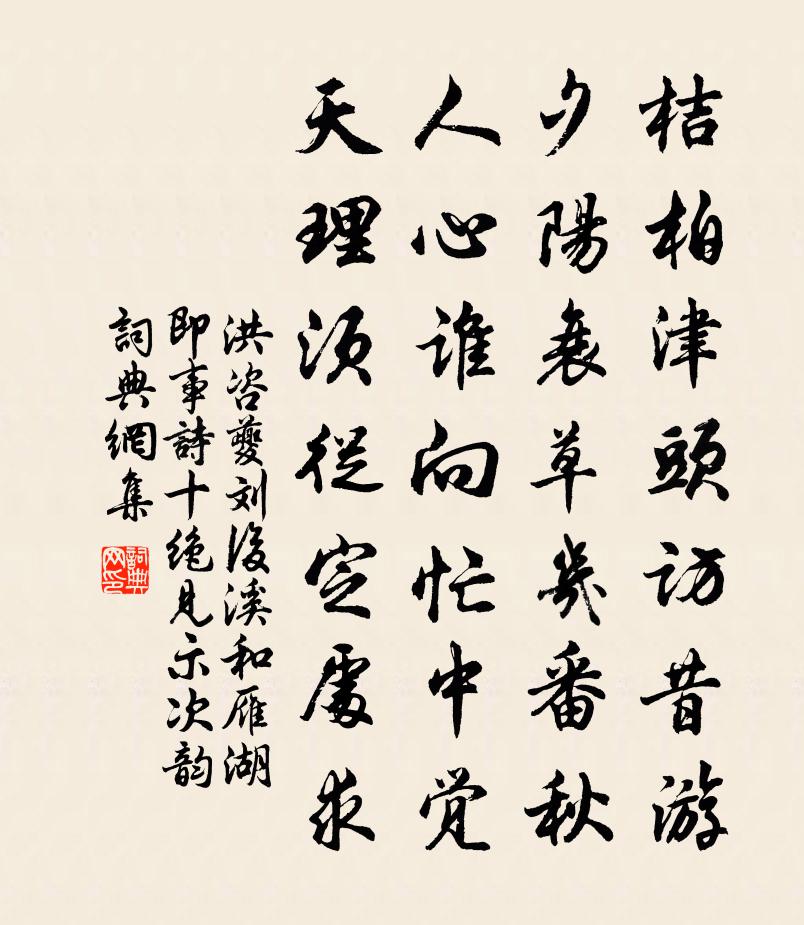 桔柏津頭訪昔游
夕陽衰草幾番秋
人心谁向忙中觉
天理须從定處求
洪咨夔刘後溪和雁湖
即事詩十绝見示次韵
詞典網集
詞典网印